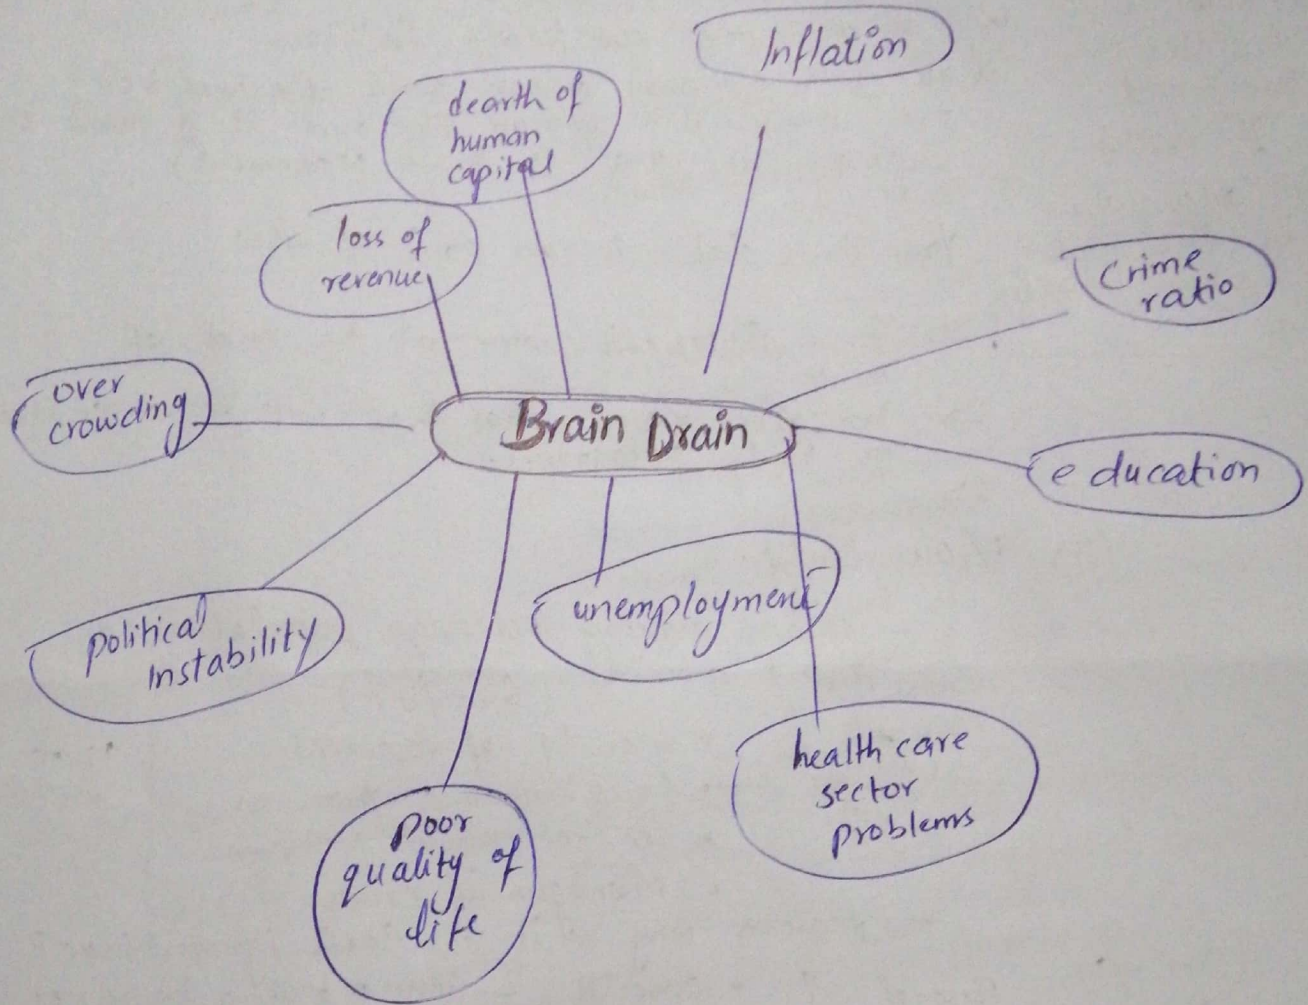 Inflation
dearth of
human
capital
loss of
revenue
Crime
ratio
over
crowding
Brain Drain
education
political
Instability
unemployment
health care
sector
problems
poor
quality of
life